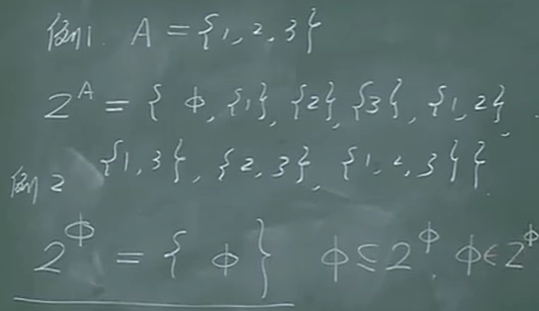 例1. A = {1, 2, 3}
2^A = { ϕ, {1}, {2}, {3}, {1, 2},
{1, 3}, {2, 3}, {1, 2, 3} }
例2
2^ϕ = { ϕ } ϕ ⊆ 2^ϕ ϕ ∈ 2^ϕ